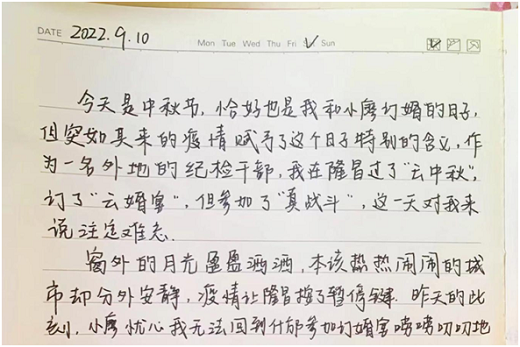 DATE 2022.9.10
Mon Tue Wed Thu Fri Sun
今天是中秋节，恰好也是我和小廖订婚的日子，
但突如其来的疫情赋予了这个日子特别的含义，作
为一名外地的纪检干部，我在隆昌过了“云中秋”，
订了“云婚宴”，但参加了“真战斗”，这一天对我来
说注定难忘。
窗外的月光盈盈洒洒，本该热热闹闹的城
市却分外安静，疫情让隆昌按了暂停键。昨天的此
刻，小廖忧心我无法回到什邡参加订婚宴唠唠叨叨地